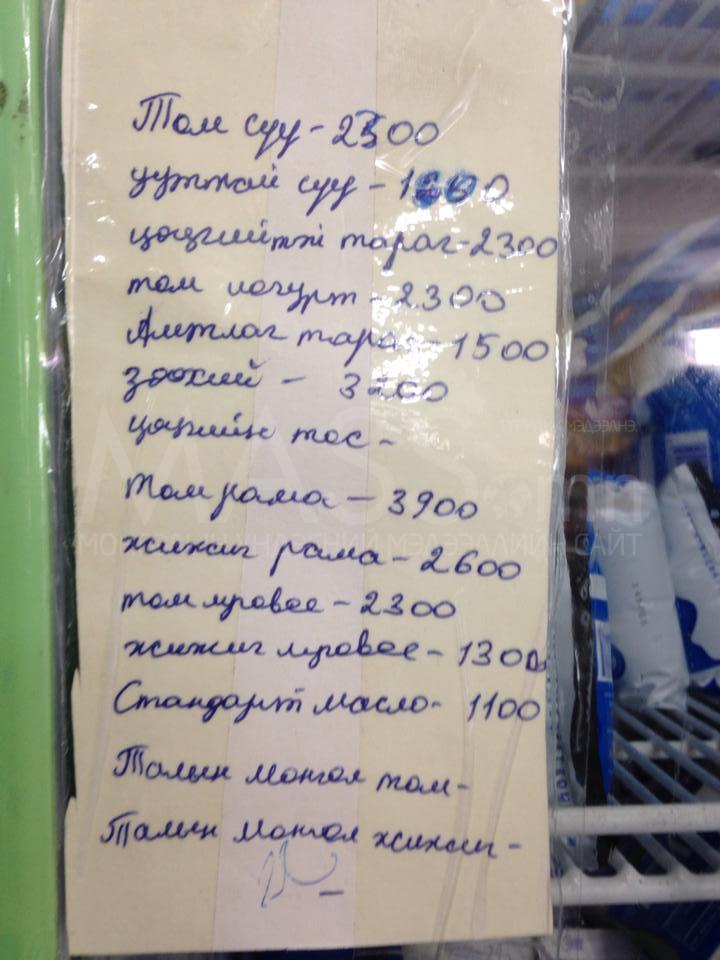 Том сүү - 2500
ууттай сүү - 1600
цөцгийтэй тараг - 2300
том иогурт - 2300
Амтлаг тараг - 1500
зөөхий - 3200
цөцгийн тос -
Том рама - 3900
жижиг рама - 2600
том яровое - 2300
жижиг яровое - 1300
Стандарт масло - 1100
Талын монгол том -
Талын монгол жижиг -
MASS.mn
МОНГОЛЫН МЭДЭЭНИЙ МЭДЭЭЛЛИЙН САЙТ